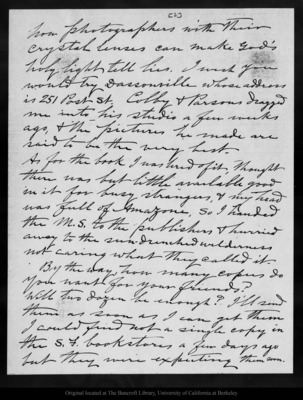 [3]
how photographers with their
crystal lenses can make God's
holy light tell lies. I wish you
would try Dassonville whose address
is 251 Post St. Colby & Parsons dragged
me into his studio a few weeks
ago, & the pictures he made are
said to be the very best.
As for the book I was tired of it, thought
there was but little available good
in it for busy strangers, & my head
was full of Amazons, so I handed
the M.S. to the publishers & hurried
away to the sun-drenched wilderness
not caring what they called it.
By the way, how many copies do
you want for your friends?
Will two dozen be enough? I'll send
them as soon as I can get them
I could find not a single copy in
the S.F. bookstores a few days ago
but they were expecting them soon.
Original located at The Bancroft Library, University of California at Berkeley